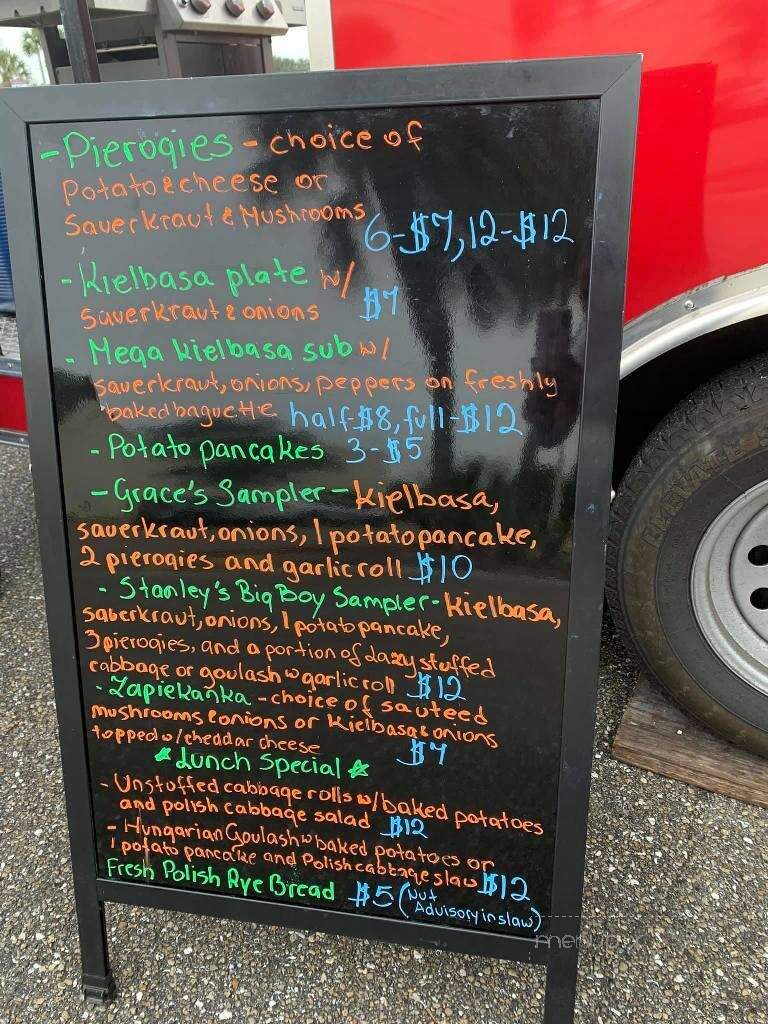 - Pierogies - choice of
Potato & cheese or
Sauerkraut & Mushrooms
6-$7, 12-$12
- Kielbasa plate w/
sauerkraut & onions $7
- Mega kielbasa sub w/
sauerkraut, onions, peppers on freshly
baked baguette half-$8, full-$12
- Potato pancakes 3-$5
- Grace's Sampler - kielbasa,
sauerkraut, onions, 1 potato pancake,
2 pierogies and garlic roll $10
- Stanley's Big Boy Sampler - kielbasa,
saberkraut, onions, 1 potato pancake,
3 pierogies, and a portion of lazy stuffed
cabbage or goulash w garlic roll $12
- Zapiekanka - choice of sauteed
mushrooms & onions or kielbasa & onions
topped w/ cheddar cheese $7
Lunch Special
- Unstuffed cabbage rolls w/ baked potatoes
and polish cabbage salad $12
- Hungarian Goulash w baked potatoes or
1 potato pancake and Polish cabbage slaw $12
Fresh Polish Rye Bread $5 (Nut
Advisory in slaw)